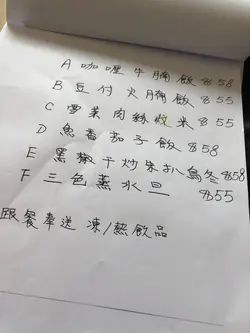 A 咖喱牛腩飯 $58
B 豆付火腩飯 $55
C 雪菜肉絲炆米 $55
D 魚香茄子飯 $58
E 黑椒干炒朱扒烏冬 $58
F 三色蒸水旦 $55
跟餐奉送 凍/熱飲品